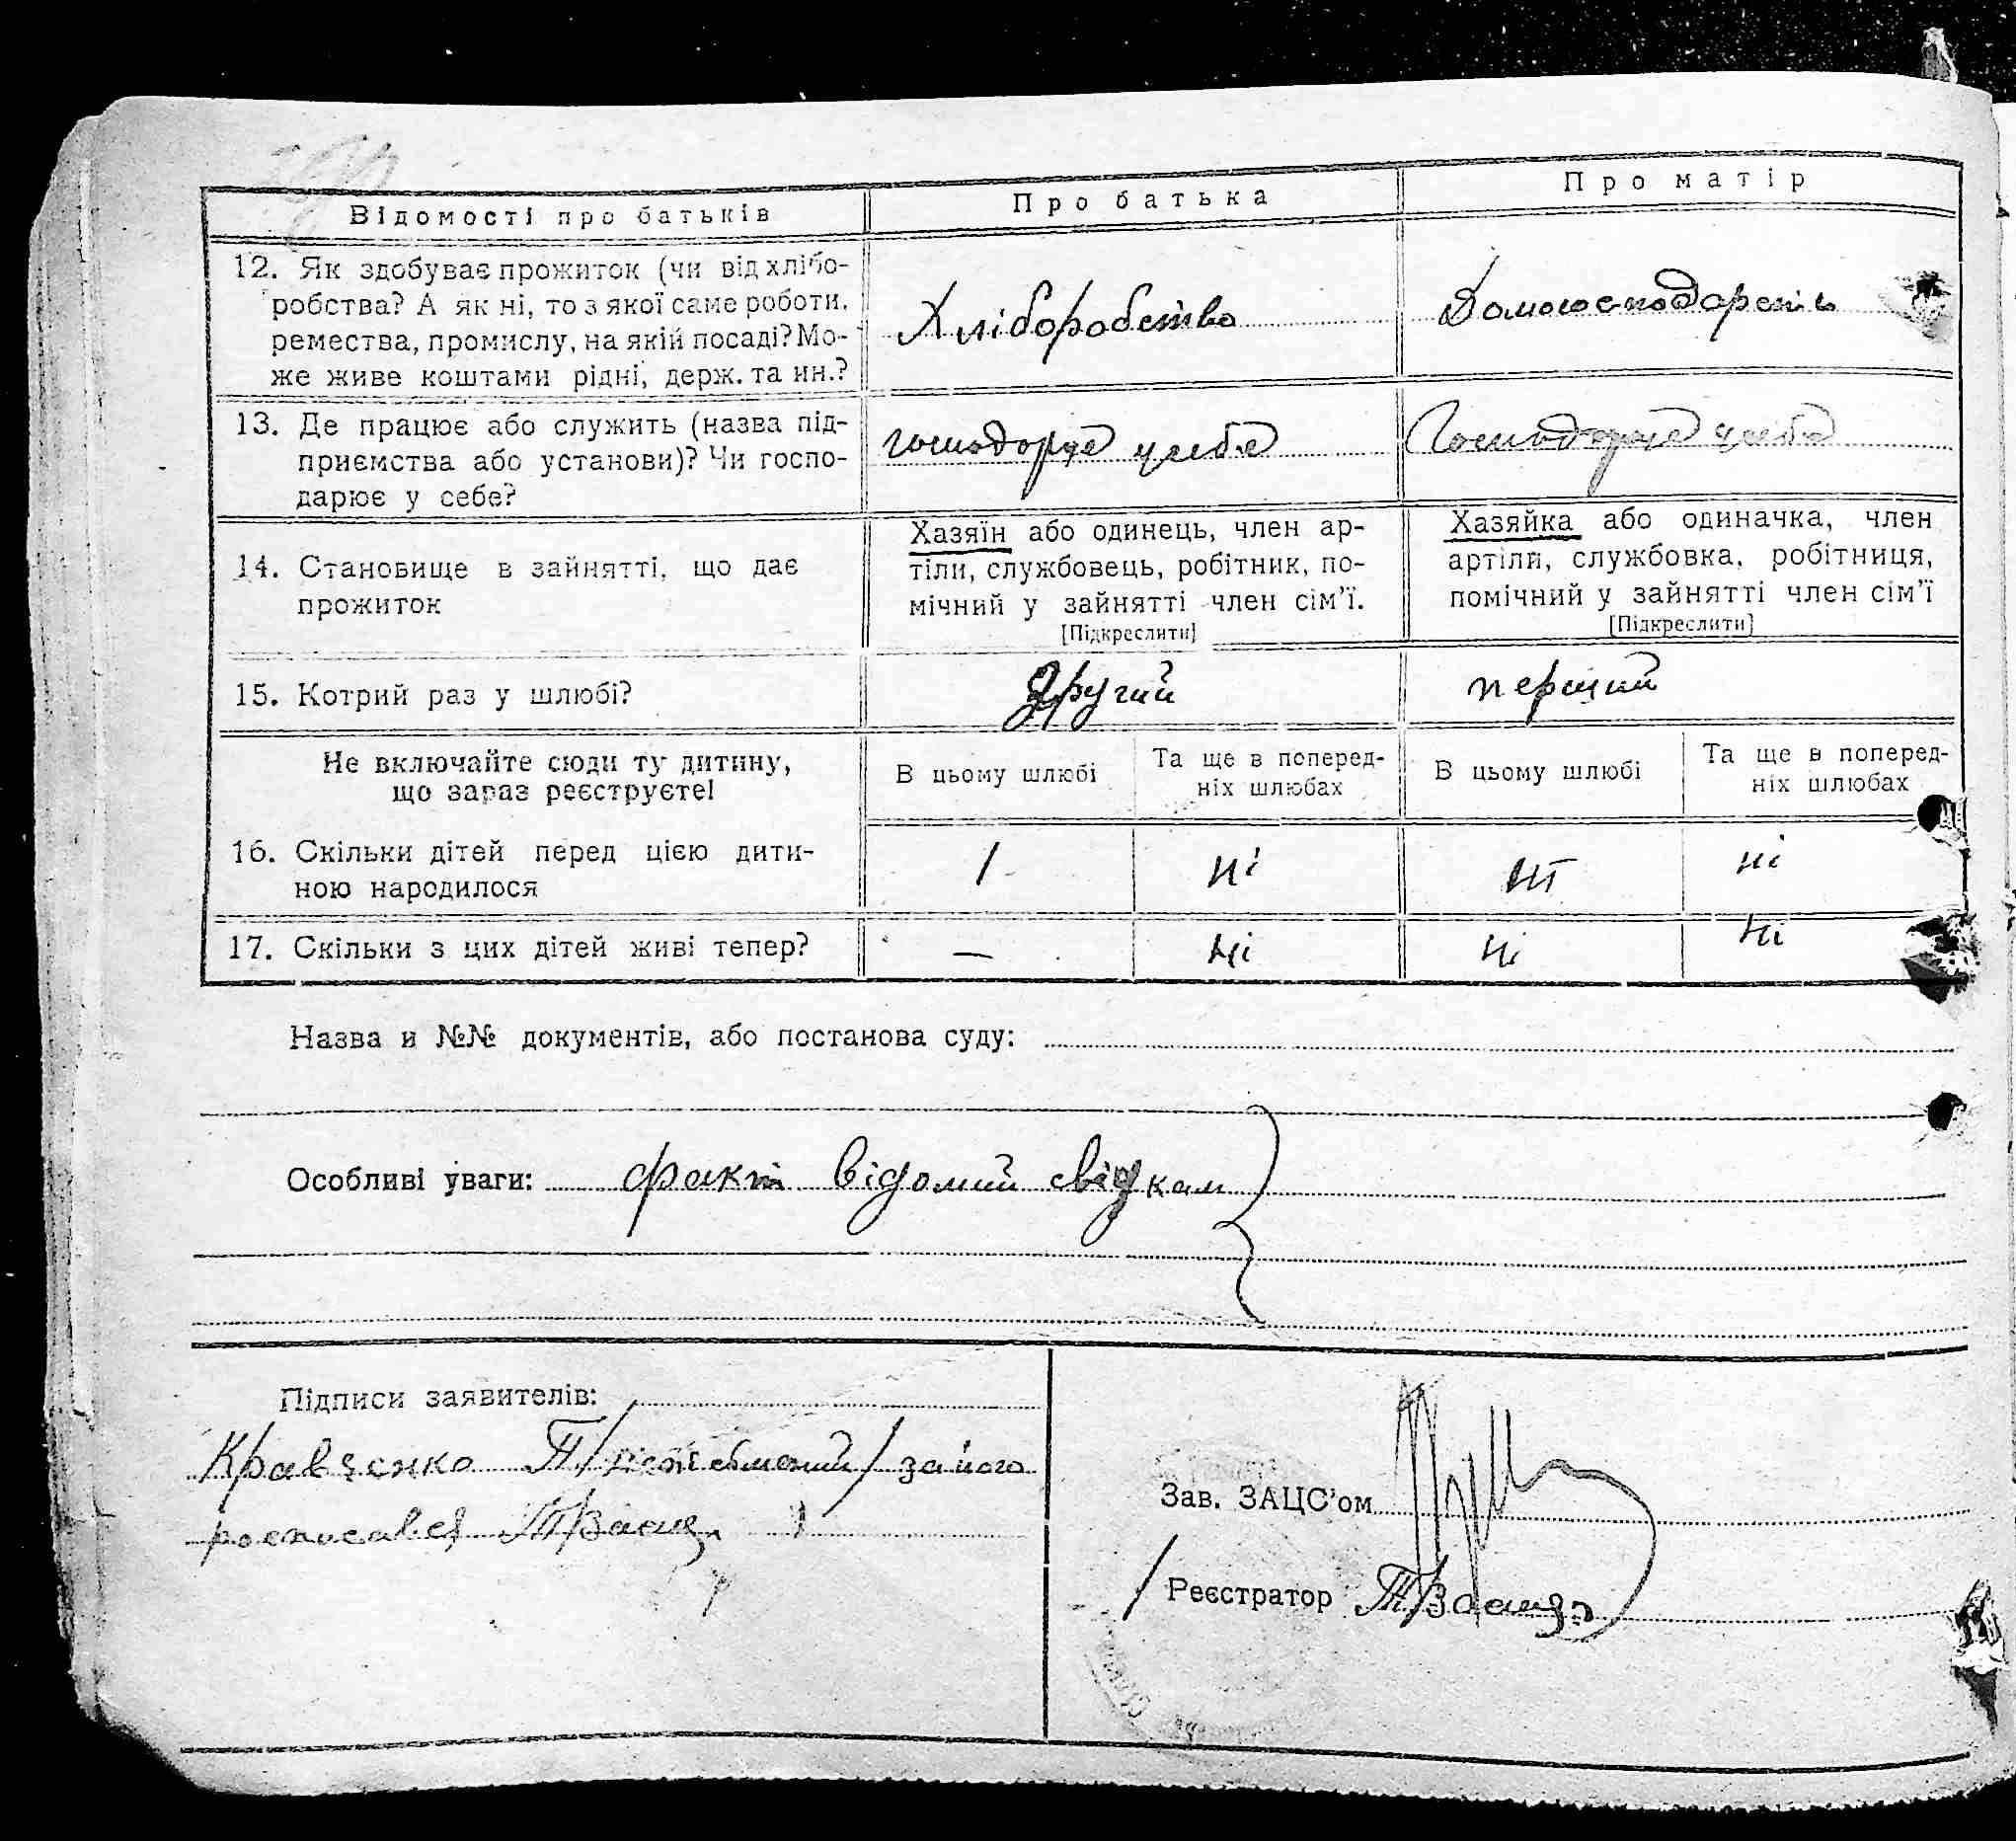 Відомості про батьків
Про батька
Про матір
12. Як здобуває прожиток (чи від хлібо-
робства? А як ні, то з якої саме роботи,
ремества, промислу, на якій посаді? Мо-
же живе коштами рідні, держ. та ин.?
Хліборобство
13. Де працює або служить (назва під-
приємства або установи)? Чи госпо-
дарює у себе?
господорує у себе
Господорує у себе
14. Становище в зайнятті, що дає
прожиток
Хазяїн або одинець, член ар-
тіли, службовець, робітник, по-
мічний у зайнятті член сім'ї.
[Підкреслити]
Хазяйка або одиначка, член
артіли, службовка, робітниця,
помічний у зайнятті член сім'ї
[Підкреслити]
15. Котрий раз у шлюбі?
Другий
перший
Не включайте сюди ту дитину,
що зараз реєструєте!
В цьому шлюбі
Та ще в поперед-
ніх шлюбах
В цьому шлюбі
Та ще в поперед-
ніх шлюбах
16. Скільки дітей перед цією дити-
ною народилося
1
ні
ні
ні
17. Скільки з цих дітей живі тепер?
—
ні
ні
ні
Назва и №№ документів, або постанова суду:
Особливі уваги: факт відомий свідкам
Підписи заявителів:
Кравченко П/ за його
росписався
Зав. ЗАЦС'ом
Реєстратор